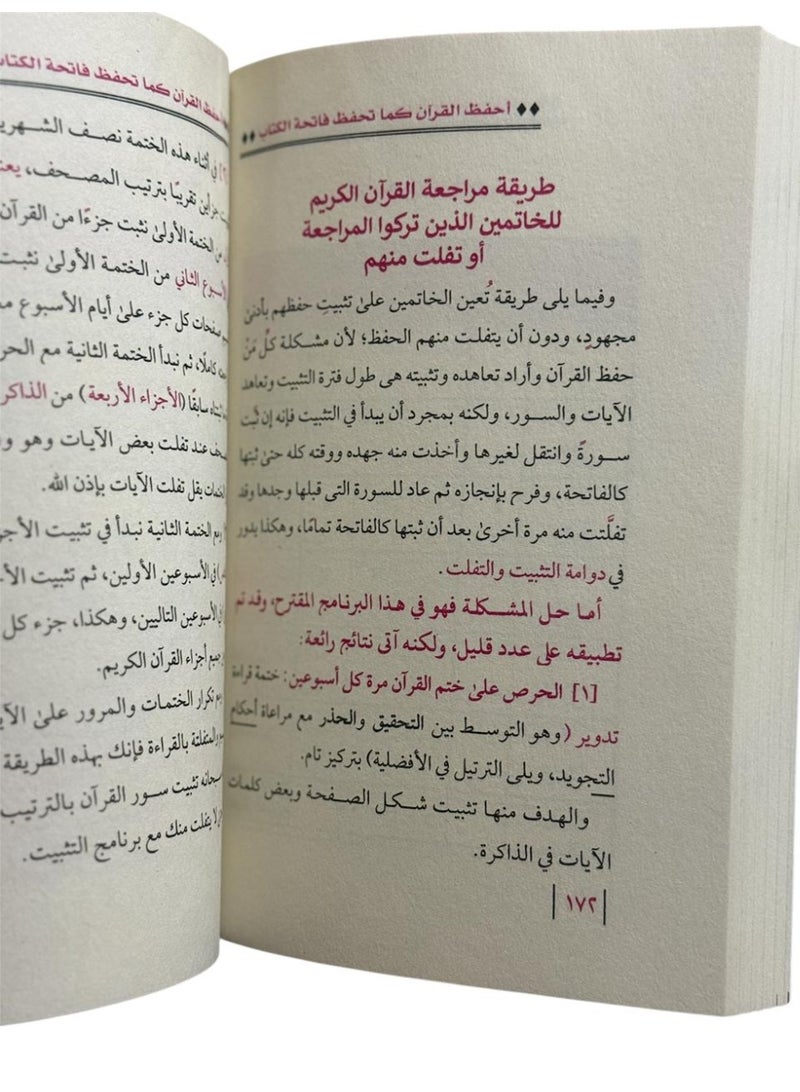 ♦♦ أحفظ القرآن كما تحفظ فاتحة الكتاب ♦♦
طريقة مراجعة القرآن الكريم
للخاتمين الذين تركوا المراجعة
أو تفلت منهم
وفيما يلى طريقة تُعين الخاتمين علىٰ تثبيتِ حفظهم بأدنىٰ
مجهودٍ، ودون أن يتفلت منهم الحفظ؛ لأن مشكلة كلِّ مَنْ
حفظ القرآن وأراد تعاهده وتثبيته هى طول فترة التثبيت وتعاهد
الآيات والسور، ولكنه بمجرد أن يبدأ في التثبيت فإنه إن ثَّبت
سورةً وانتقل لغيرها وأخذت منه جهده ووقته كله حتىٰ ثبتها
كالفاتحة، وفرح بإنجازه ثم عاد للسورة التى قبلها وجدها وقد
تفلَّتت منه مرة أخرىٰ بعد أن ثبتها كالفاتحة تمامًا، وهكذا يدور
في دوامة التثبيت والتفلت.
أما حل المشكلة فهو في هذا البرنامج المقترح، وقد تم
تطبيقه على عدد قليل، ولكنه آتى نتائج رائعة:
[١] الحرص علىٰ ختم القرآن مرة كل أسبوعين: ختمة قراءة
تدوير (وهو التوسط بين التحقيق والحذر مع مراعاة أحكام
التجويد، ويلى الترتيل في الأفضلية) بتركيز تام.
والهدف منها تثبيت شكل الصفحة وبعض كلمات
الآيات في الذاكرة.
١٧٢
أحفظ القرآن كما تحفظ فاتحة الكتاب
في أثناء هذه الختمة نصف الشهرية
جزأين تقريبًا بترتيب المصحف،
من الختمة الأولىٰ نثبت جزءًا من القرآن
الأسبوع الثاني من الختمة الأولىٰ نثبت
صفحات كل جزء علىٰ أيام الأسبوع
كاملًا، ثم نبدأ الختمة الثانية مع
سابقًا (الأجزاء الأربعة) من
عند تفلت بعض الآيات وهو
يقل تفلت الآيات بإذن الله.
الختمة الثانية نبدأ في تثبيت
في الأسبوعين الأولين، ثم تثبيت
الأسبوعين التاليين، وهكذا، جزء كل
جميع أجزاء القرآن الكريم.
تكرار الختمات والمرور علىٰ
بالقراءة فإنك بهذه الطريقة
سبحانه تثبيت سور القرآن بالترتيب
لا يتفلت منك مع برنامج التثبيت.